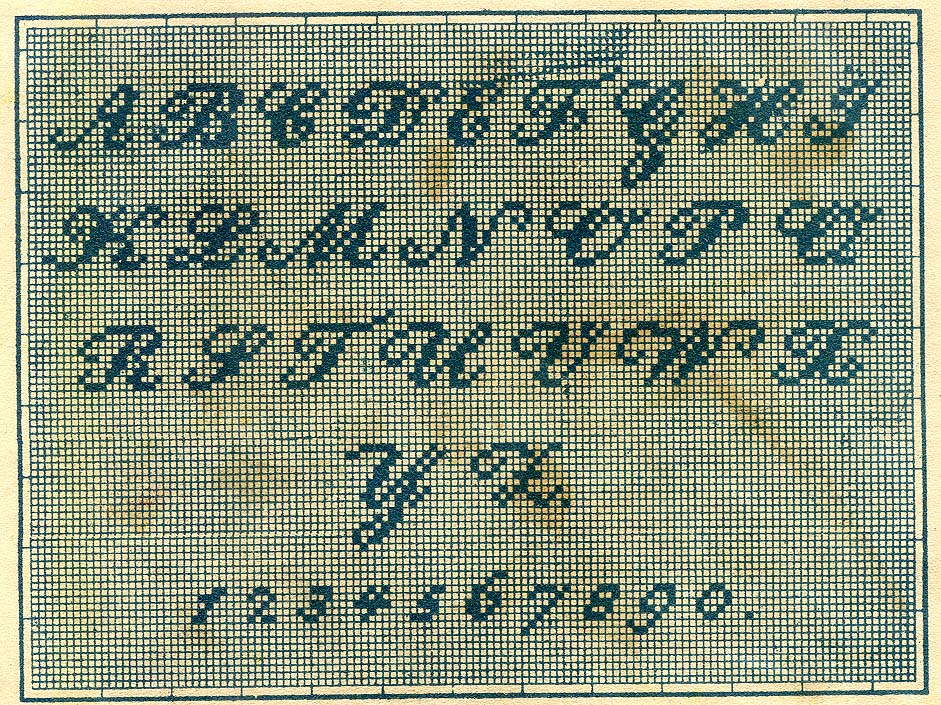 A B C D E F G H J
K L M N O P Q
R S T U V W X
Y Z
1 2 3 4 5 6 7 8 9 0.